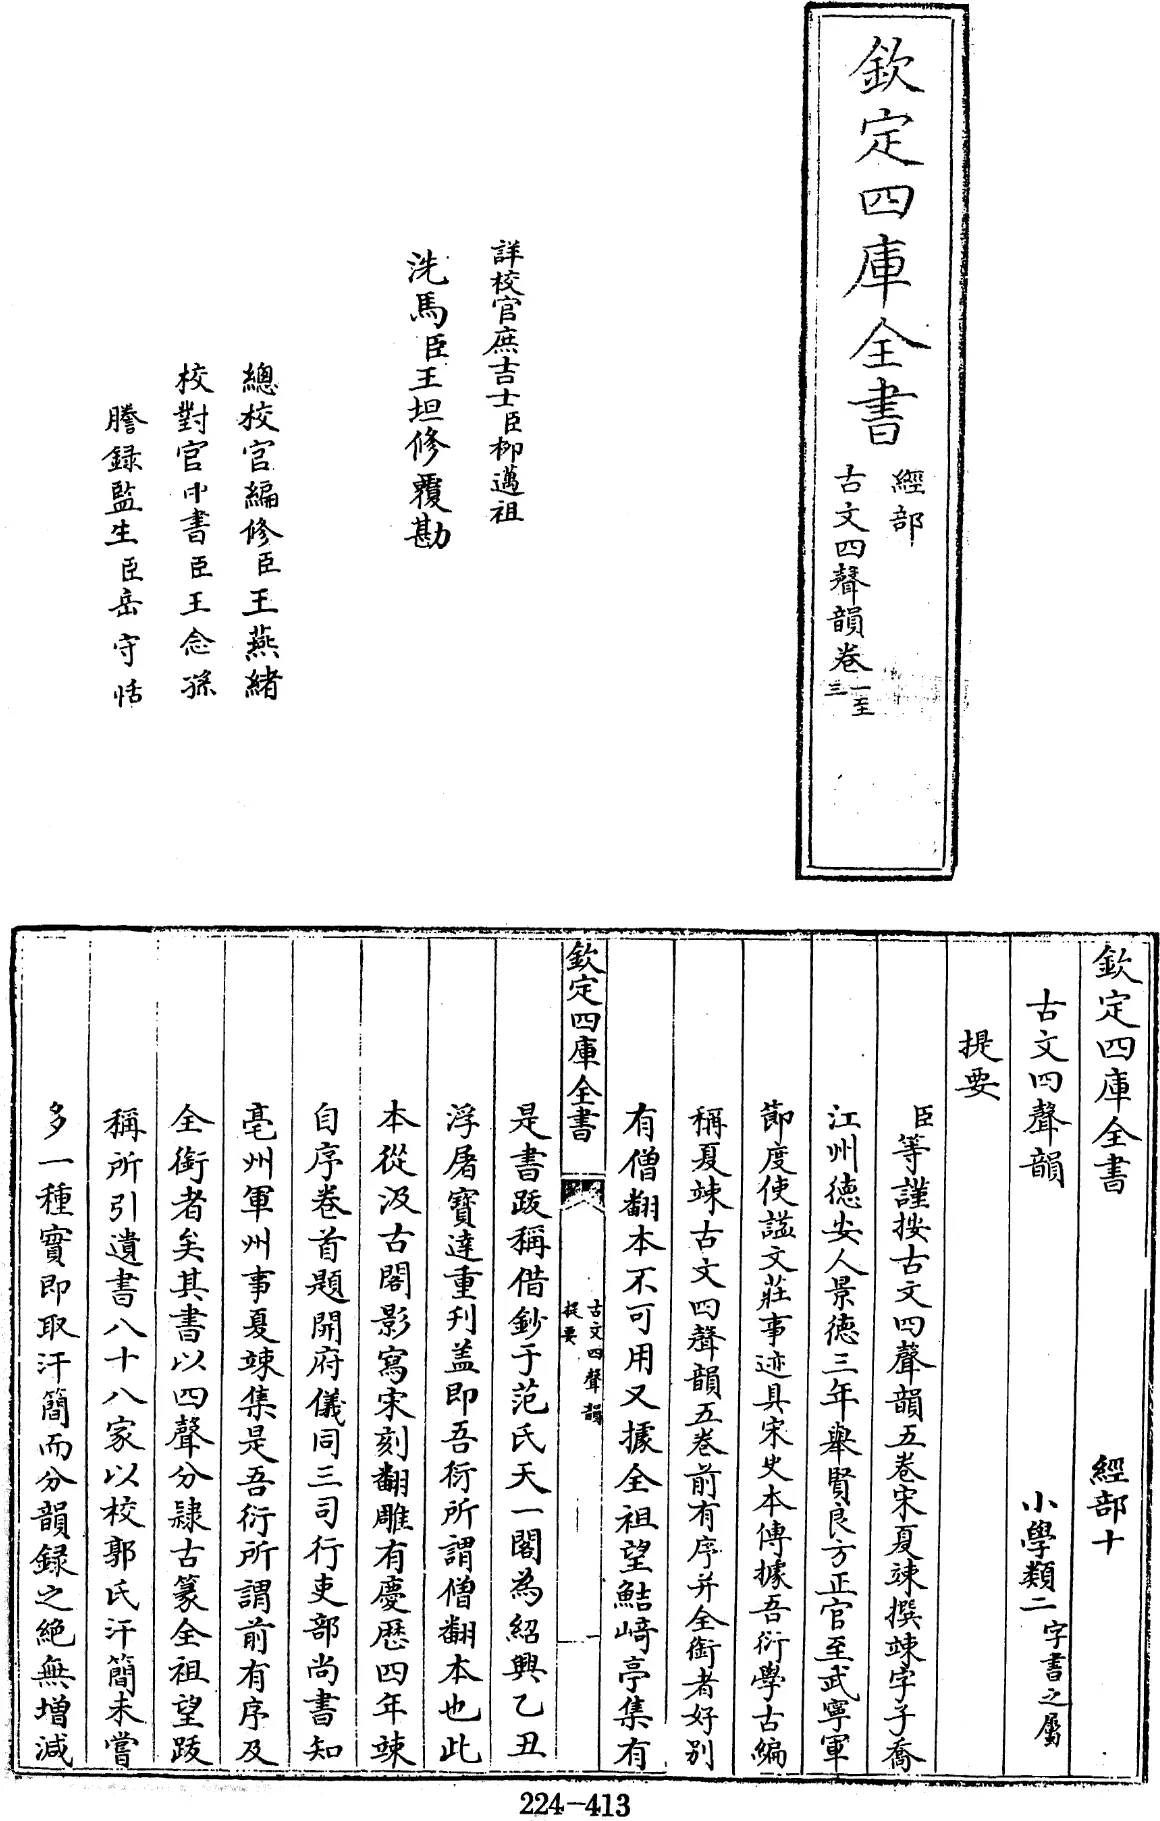 欽定四庫全書
經部
古文四聲韻卷一至三
詳校官庶吉士臣柳邁祖
洗馬臣王坦修覆勘
總校官編修臣王燕緒
校對官中書臣王念孫
謄録監生臣岳守恬
欽定四庫全書 經部十
古文四聲韻 小學類二 字書之屬
提要
臣等謹按古文四聲韻五卷宋夏竦撰竦字子喬
江州徳安人景徳三年舉賢良方正官至武寧軍
節度使諡文莊事迹具宋史本傳據吾衍學古編
稱夏竦古文四聲韻五卷前有序并全銜者好別
有僧翻本不可用又據全祖望鮚埼亭集有
欽定四庫全書
古文四聲韻
提要
一
是書跋稱借鈔于范氏天一閣為紹興乙丑
浮屠寶達重刋盖即吾衍所謂僧翻本也此
本從汲古閣影寫宋刻翻雕有慶歴四年竦
自序卷首題開府儀同三司行吏部尚書知
亳州軍州事夏竦集是吾衍所謂前有序及
全銜者矣其書以四聲分隷古篆全祖望跋
稱所引遺書八十八家以校郭氏汗簡未嘗
多一種實即取汗簡而分韻録之絶無增減
224-413